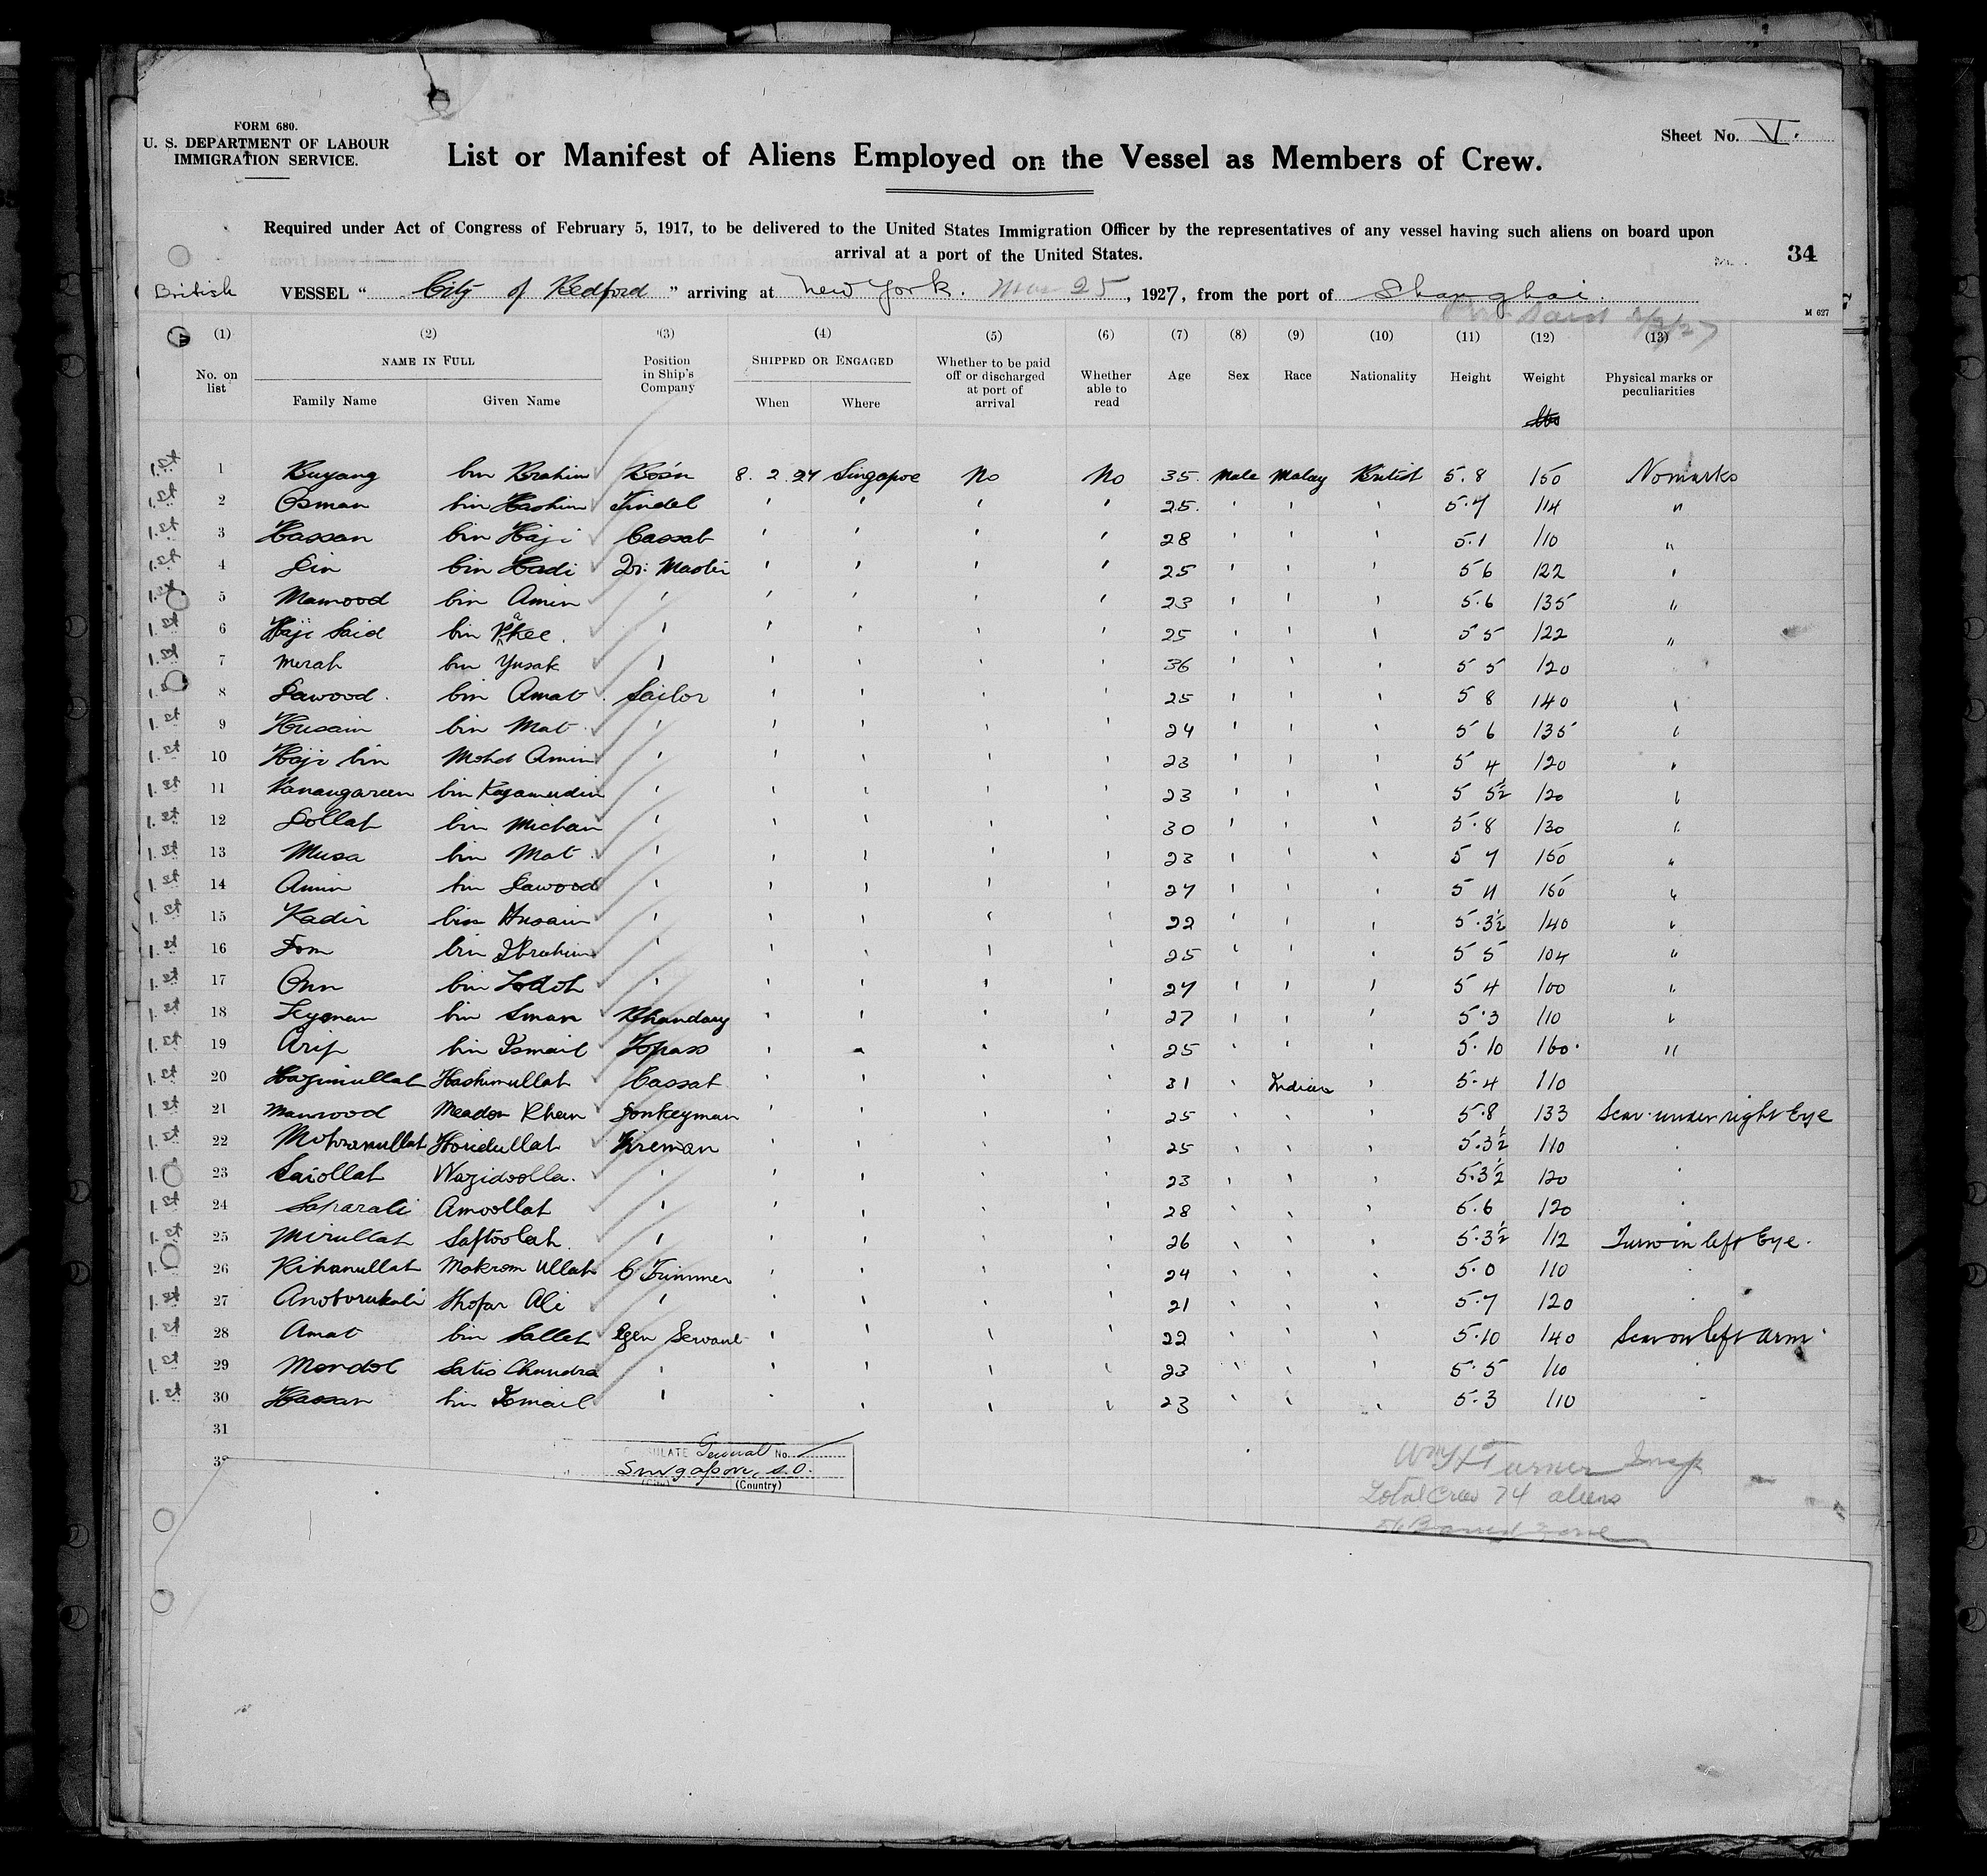 FORM 680.
U. S. DEPARTMENT OF LABOUR
IMMIGRATION SERVICE.
Sheet No. V.
List or Manifest of Aliens Employed on the Vessel as Members of Crew.
Required under Act of Congress of February 5, 1917, to be delivered to the United States Immigration Officer by the representatives of any vessel having such aliens on board upon
arrival at a port of the United States.
34
British VESSEL " City of Bedford " arriving at New York. Mar 25, 1927, from the port of Shanghai.
M 627
(1) (2) (3) (4) (5) (6) (7) (8) (9) (10) (11) (12) (13)
No. on list NAME IN FULL Position in Ship's Company SHIPPED OR ENGAGED Whether to be paid off or discharged at port of arrival Whether able to read Age Sex Race Nationality Height Weight Physical marks or peculiarities
Family Name Given Name When Where
1.st 1 Buyang bin Brahim Bosn 8. 2. 27 Singapore No No 35. Male Malay British 5. 8 150 No marks
1.st 2 Osman bin Hashim Tindel ' ' ' ' 25. ' ' ' 5.7 114 "
1.st 3 Hassan bin Haji Cassab ' ' ' ' 28 ' ' ' 5.1 110 "
1.st 4 Din bin Hadi Qr. Master ' ' ' ' 25 ' ' ' 5 6 122 '
1.st 5 Mamood bin Amin ' ' ' ' ' 23 ' ' ' 5.6 135 "
1.st 6 Haji Said bin ' ' ' ' ' 25 ' ' ' 5 5 122 "
1.st 7 Merah bin Yusak ' ' ' ' ' 36 ' ' ' 5 5 120
1.st 8 Dawood. bin Amat. Sailor ' ' ' ' 25 ' ' ' 5 8 140 '
1.st 9 Husain bin Mat ' ' ' ' ' 24 ' ' ' 5 6 135 '
1.st 10 Haji bin Mohd Amin ' ' ' ' ' 23 ' ' ' 5 4 120 '
1.st 11 bin Kayamudin ' ' ' ' ' 23 ' ' ' 5 5½ 120 '
1.st 12 Dollah bin Michan ' ' ' ' ' 30 ' ' ' 5.8 130 '
1.st 13 Musa bin Mat. ' ' ' ' ' 23 ' ' ' 5 7 150 "
1.st 14 Amin bin Dawood ' ' ' ' ' 27 ' ' ' 5 "
1.st 15 Kadir bin Husain ' ' ' ' ' 22 ' ' ' 5.3½ 140 '
1.st 16 Dom bin Ibrahim ' ' ' ' ' 25 ' ' ' 5 5 104 "
1.st 17 Onn bin ' ' ' ' ' 27 ' ' ' 5 4 100 "
1.st 18 bin Sman Bhandary ' ' ' ' 27 ' ' ' 5.3 110 '
1.st 19 Arip bin Ismail Topass ' ' ' ' 25 ' ' ' 5.10 160. "
1.st 20 Hazimullah Hashimullah Cassab ' ' ' ' 31 ' Indian ' 5.4 110
1.st 21 Mamood Meador Khan Donkeyman ' ' ' ' 25 ' ' ' 5.8 133 Scar under right Eye
1.st 22 Horidullah Fireman ' ' ' ' 25 ' ' ' 5.3½ 110
1. 23 Saiollah Wazidoolla. ' ' ' ' ' 23 ' ' ' 5.3½ 120
1.st 24 Safarali Amoollah ' ' ' ' ' 28 ' ' ' 5.6 120
1.st 25 Mirullah Saftoolah. ' ' ' ' ' 26 ' ' ' 5.3½ 112 Turn in left Eye.
1. 26 Rihanullah Mokrom Ullah C Trimmer ' ' ' ' 24 ' ' ' 5.0 110
1.st 27 Shofar Ali ' ' ' ' ' 21 ' ' ' 5.7 120
1.st 28 Amat bin Salleh Servant ' ' ' ' 22 ' ' ' 5.10 140 Scar on left arm.
1.st 29 Mondol Satis Chandra ' ' ' ' ' 23 ' ' ' 5.5 110
1.st 30 Hassan bin Ismail ' ' ' ' ' 23 ' ' ' 5.3 110
31
CONSULATE General No.
Singapore, S.S.
(Country)
Turner Insp
Total Crew 74 aliens
Barred Zone